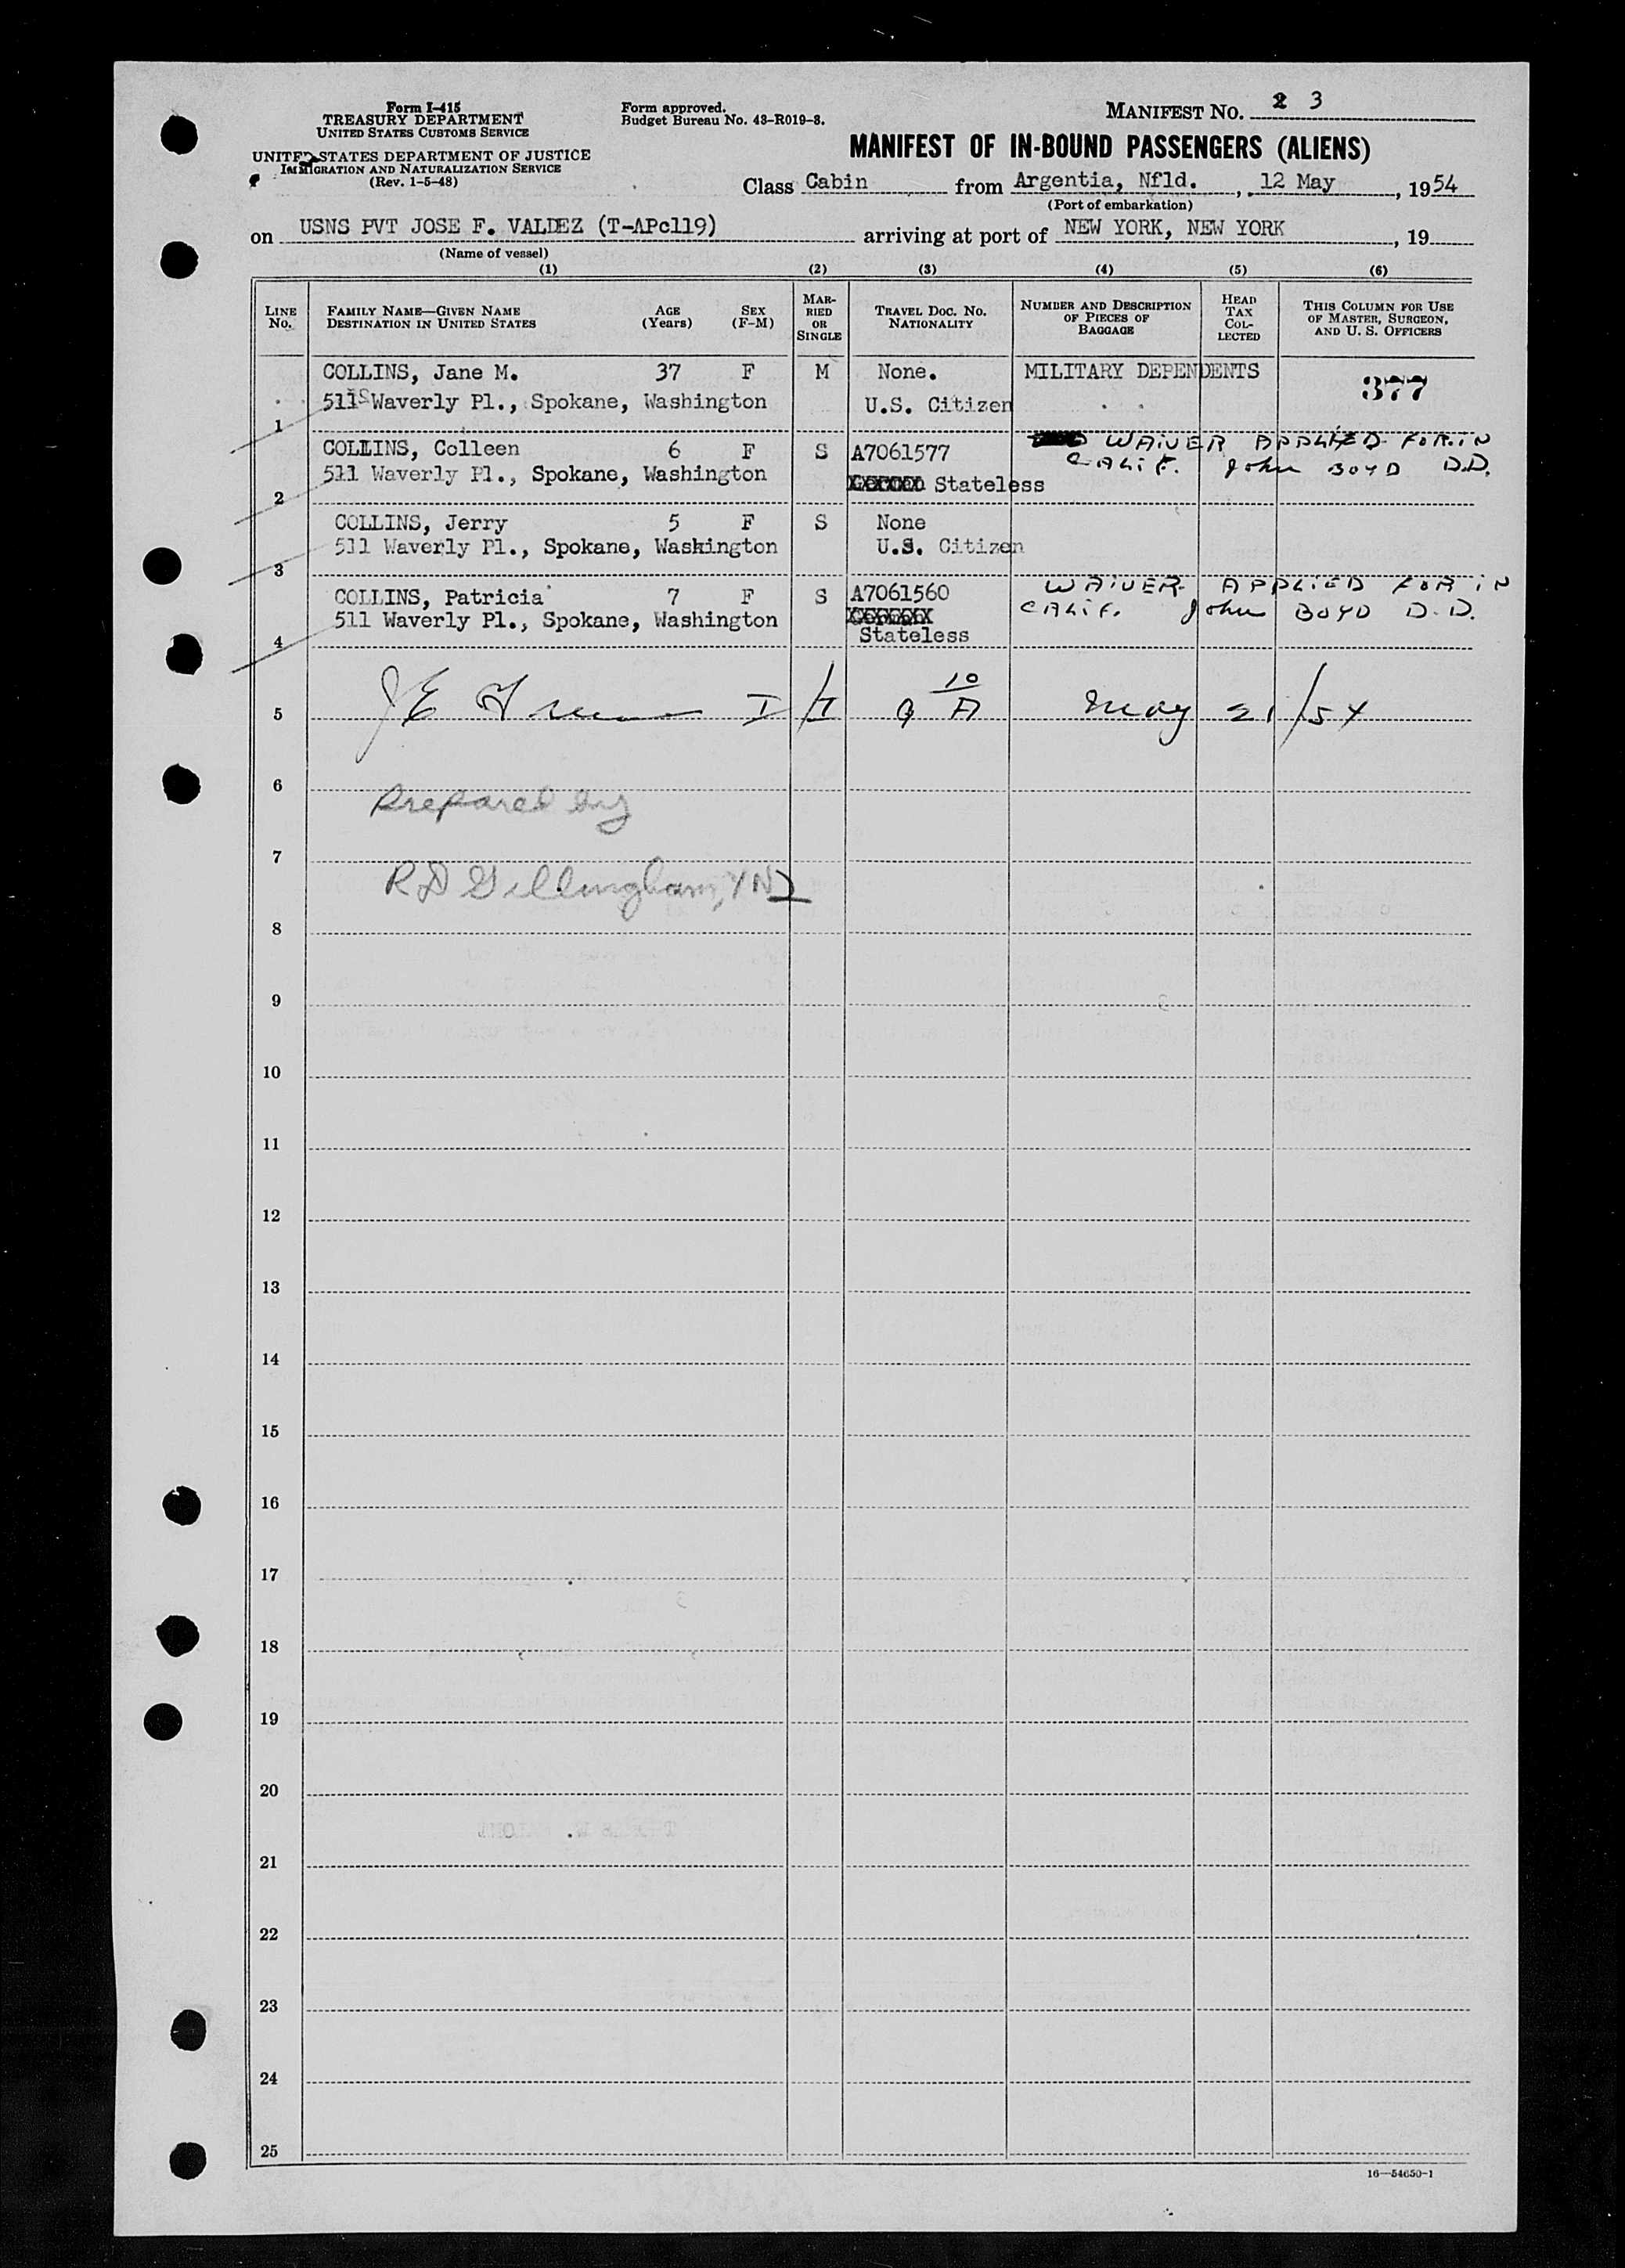 Form I-415
TREASURY DEPARTMENT
UNITED STATES CUSTOMS SERVICE
UNITED STATES DEPARTMENT OF JUSTICE
IMMIGRATION AND NATURALIZATION SERVICE
(Rev. 1-5-48)
Form approved.
Budget Bureau No. 43-R019-3.
MANIFEST No. 3
MANIFEST OF IN-BOUND PASSENGERS (ALIENS)
Class Cabin from Argentia, Nfld., 12 May, 1954
(Port of embarkation)
on USNS PVT JOSE F. VALDEZ (T-APc119) arriving at port of NEW YORK, NEW YORK, 19
(Name of vessel)
(1) (2) (3) (4) (5) (6)
LINE No. FAMILY NAME—GIVEN NAME DESTINATION IN UNITED STATES AGE (Years) SEX (F-M) MARRIED OR SINGLE TRAVEL DOC. NO. NATIONALITY NUMBER AND DESCRIPTION OF PIECES OF BAGGAGE HEAD TAX COLLECTED THIS COLUMN FOR USE OF MASTER, SURGEON, AND U. S. OFFICERS
COLLINS, Jane M. 37 F M None. MILITARY DEPENDENTS 377
1 511 S Waverly Pl., Spokane, Washington U.S. Citizen
COLLINS, Colleen 6 F S A7061577 WAIVER APPLIED FOR IN
CALIF. John BOYD D.D.
2 511 Waverly Pl., Spokane, Washington Stateless
COLLINS, Jerry 5 F S None
3 511 Waverly Pl., Spokane, Washington U.S. Citizen
COLLINS, Patricia 7 F S A7061560 WAIVER APPLIED FOR IN
4 511 Waverly Pl., Spokane, Washington CALIF. John BOYD D.D.
Stateless
5 May 21/54
6 Prepared by
7
R D Gillingham, YN1
8
9
10
11
12
13
14
15
16
17
18
19
20
21
22
23
24
25
16—54650-1